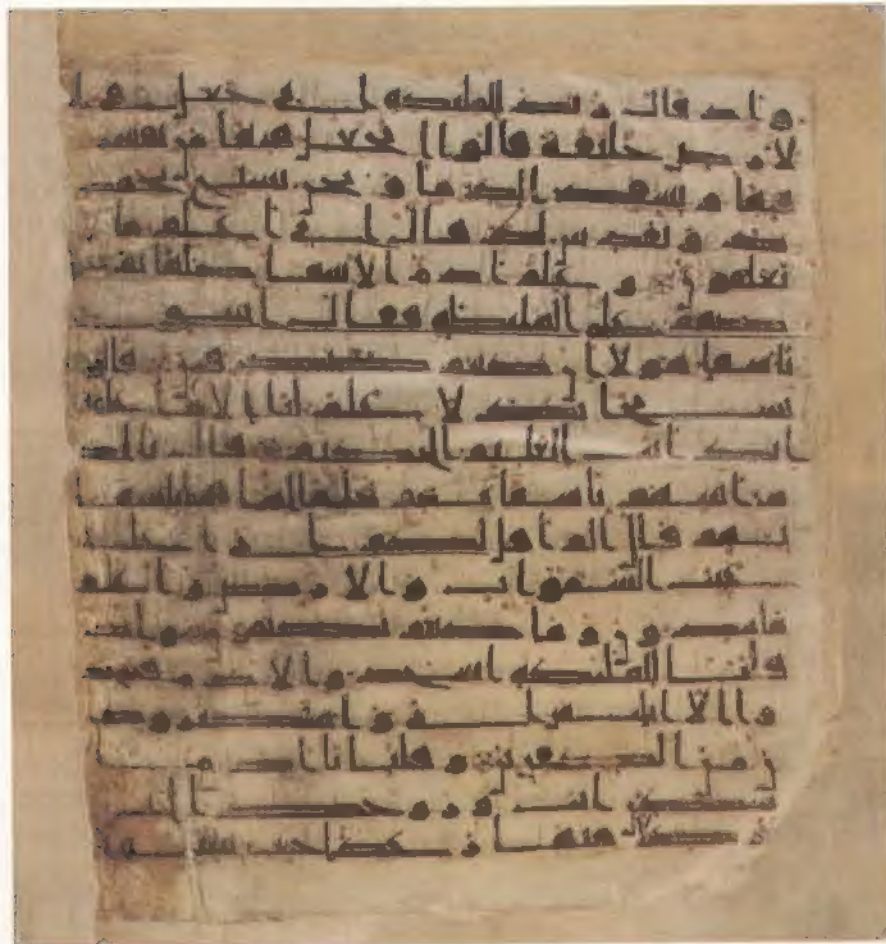 واذ قال ربك للملئكه اني جعل في ا
لارض خليفة قالوا اتجعل فيها من يفسد
فيها و يسفك الدما و نحن نسبح بحمد
ك و نقدس لك قال اني اعلم ما لا
تعلمون و علم ادم الاسما كلها ثم عر
ضهم على الملئكه فقال انبو ني
باسما هولا ان كنتم صدقين قالو
سبحنك لا علم لنا الا ما علمتنا
انك انت العليم الحكيم قال يادم
انبئهم باسمائهم فلما انباهم باسما
ئهم قال الم اقل لكم اني اعلم
غيب السموات و الارض و اعلم
ما تبدون و ما كنتم تكتمون و اذ
قلنا للملئكه اسجدوا لادم فسجد
وا الا ابليس ابى و استكبر و كا
ن من الكفرين و قلنا يادم ا
سكن انت و زوجك الجنة
و كلا منها رغدا حيث شئتما